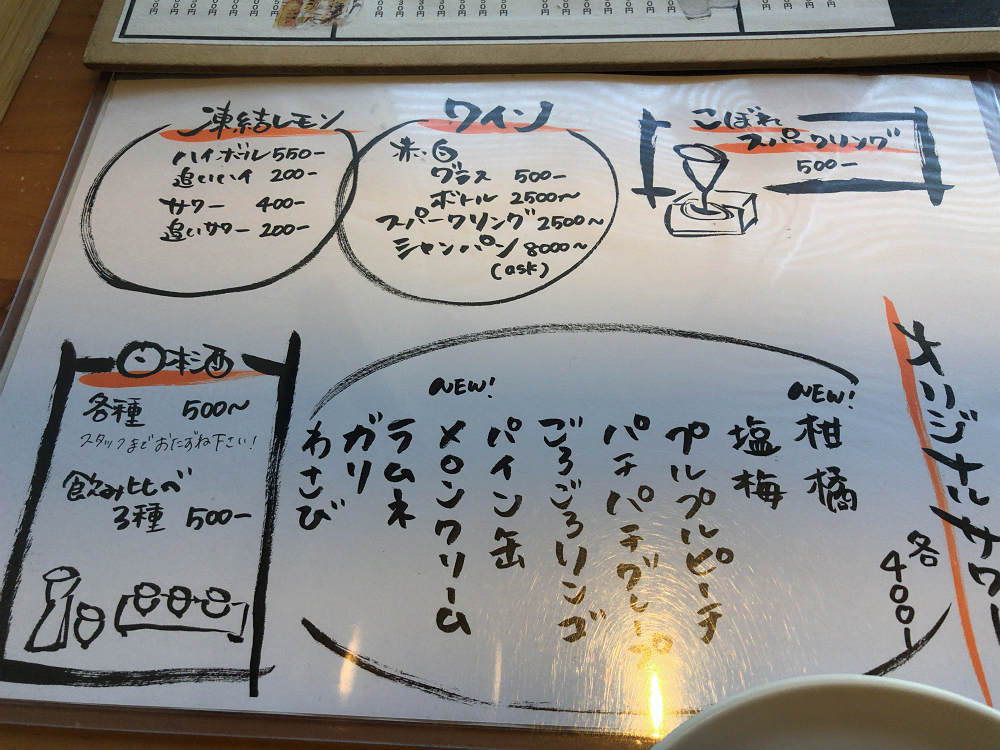 凍結レモン
ハイボール 550-
追いハイ 200-
サワー 400-
追いサワー 200-
ワイン
赤・白
グラス 500-
ボトル 2500〜
スパークリング 2500〜
シャンパン 8000〜
(ask)
こぼれ
スパークリング
500-
日本酒
各種 500〜
スタッフまでおたずね下さい!
飲み比べ
3種 500-
オリジナルサワー
各400-
NEW!
柑橘
塩梅
プルプルピーチ
パチパチグレープ
ごろごろリンゴ
パイン缶
NEW!
メロンクリーム
ラムネ
ガリ
わさび